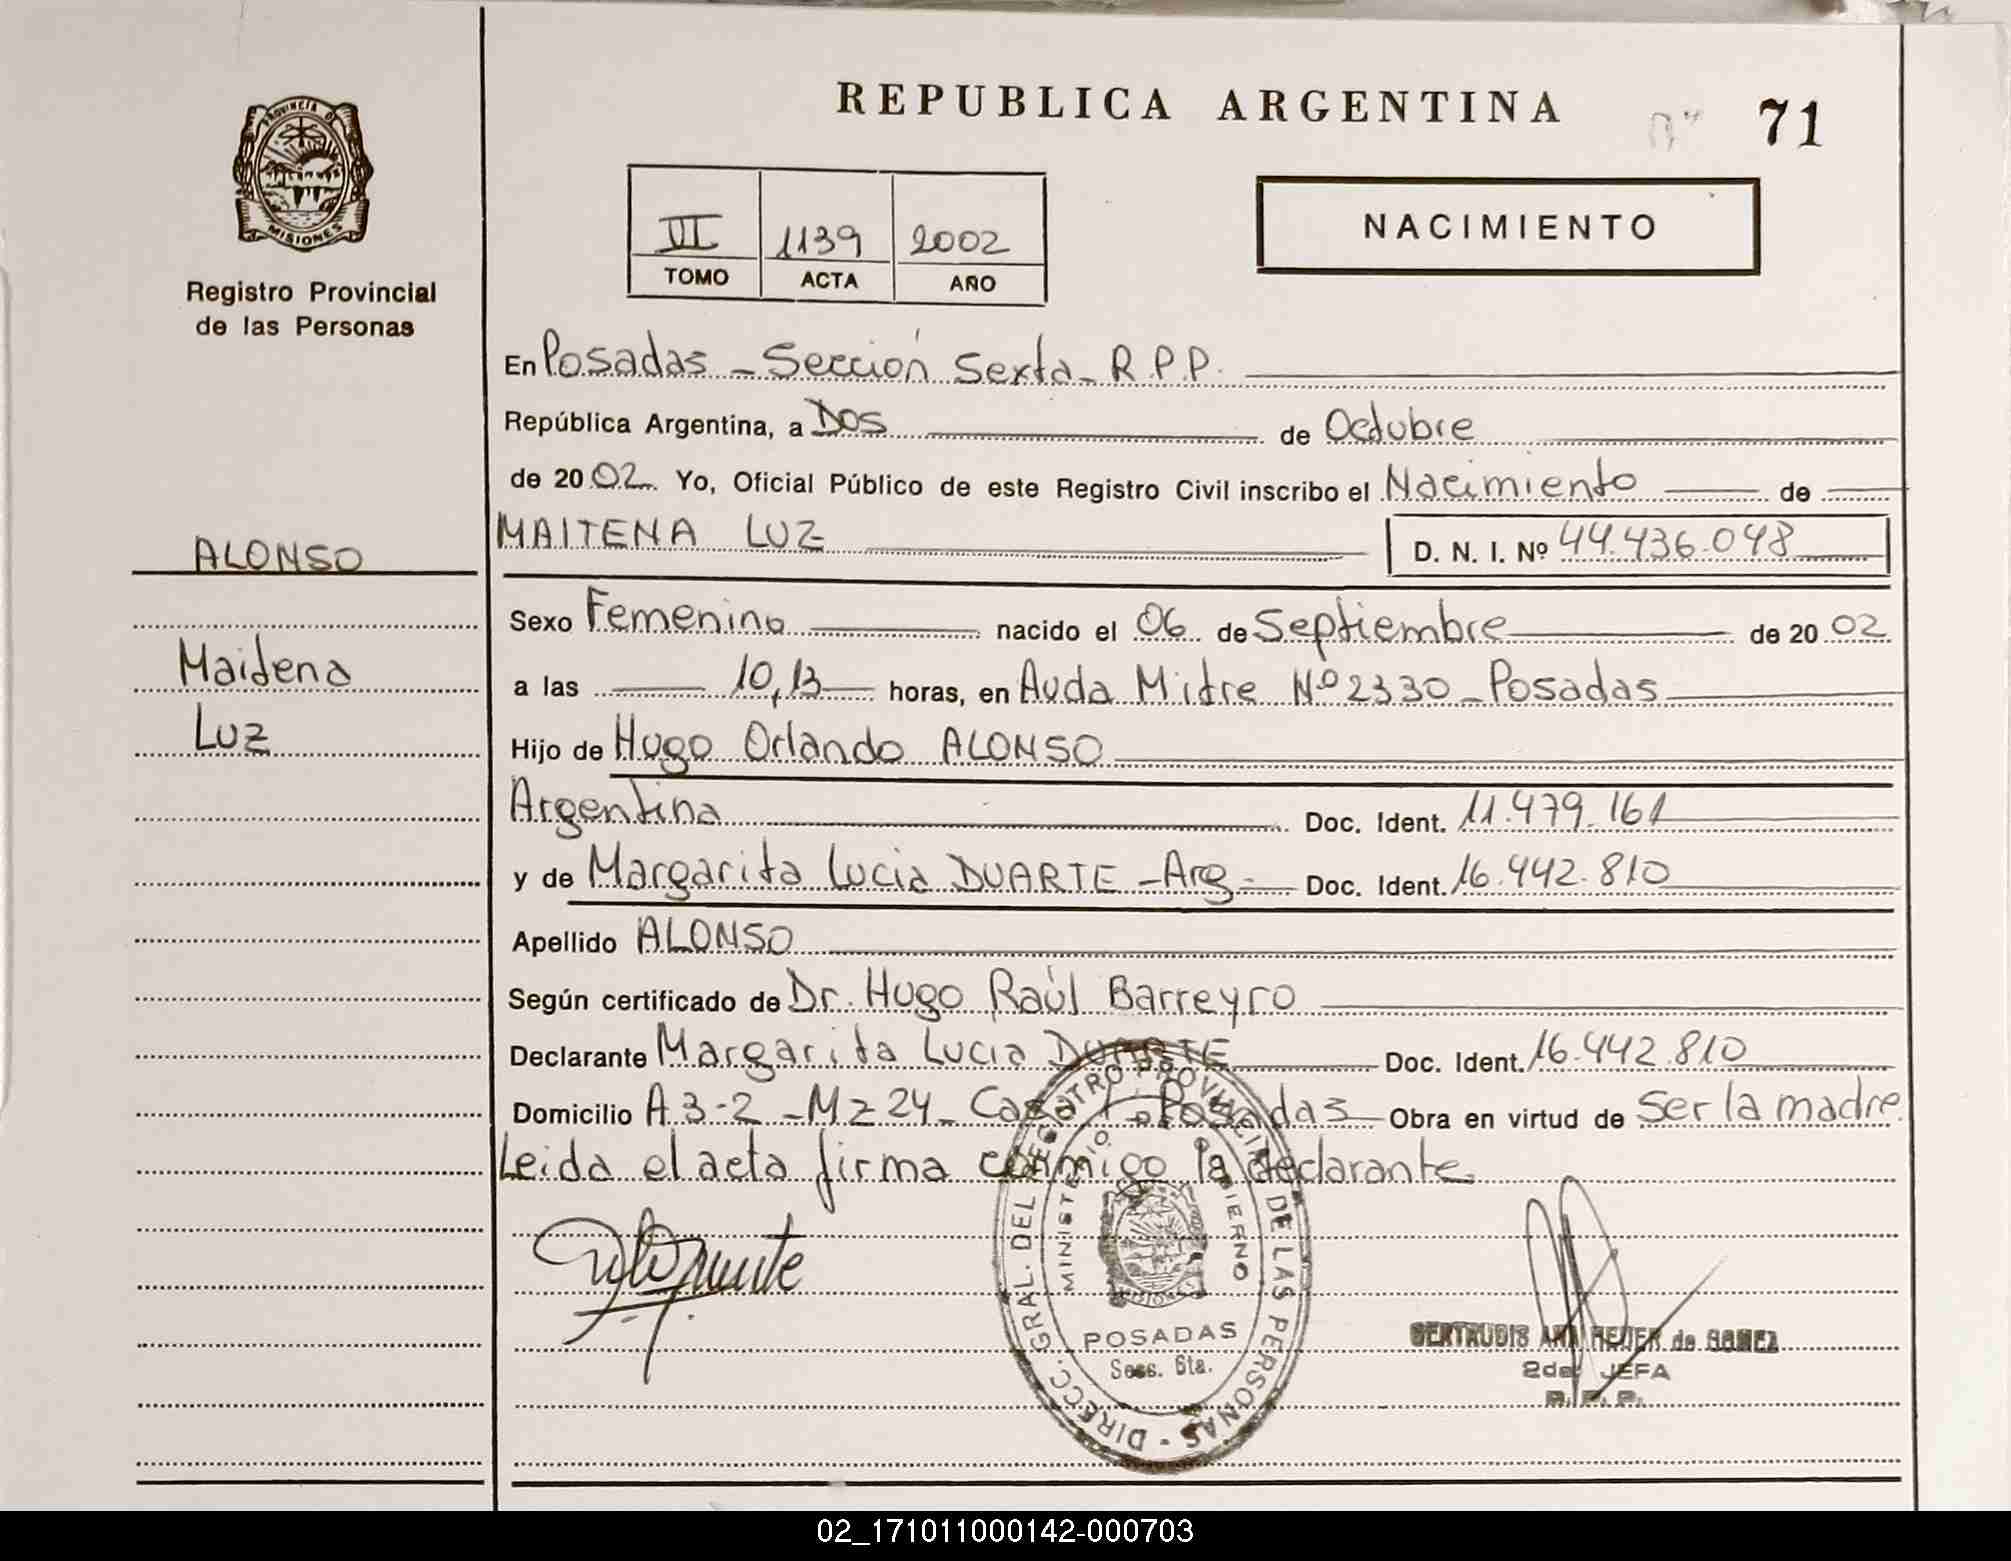 REPUBLICA ARGENTINA
71
PROVINCIA DE
MISIONES
Registro Provincial
de las Personas
NACIMIENTO
1139 2002
TOMO ACTA AÑO
En Posadas - Sección Sexta - R.P.P.
República Argentina, a Dos de Octubre
de 2002 Yo, Oficial Público de este Registro Civil inscribo el Nacimiento de
ALONSO
MAITENA LUZ D. N. I. Nº 44.436.048
Sexo Femenino nacido el 06 de Septiembre de 2002
Maitena
a las 10,13 horas, en Avda Mitre Nº 2330 - Posadas
Luz
Hijo de Hugo Orlando ALONSO
Argentina Doc. Ident. 11.479.161
y de Margarita Lucia DUARTE - Arg - Doc. Ident. 16.442.810
Apellido ALONSO
Según certificado de Dr. Hugo Raúl Barreyro
Declarante Margarita Lucia DUARTE Doc. Ident. 16.442.810
Domicilio A.3-2 - Mz 24 - Casa Posadas Obra en virtud de Ser la madre
Leida el acta firma conmigo la declarante
DIRECC. GRAL. DEL REGISTRO PROVINCIAL DE LAS PERSONAS -
MINISTERIO DE GOBIERNO
MISIONES
POSADAS
Secc. 6ta.
GERTRUDIS ANA de GOMEZ
2da JEFA
R. P. P.
02_171011000142-000703